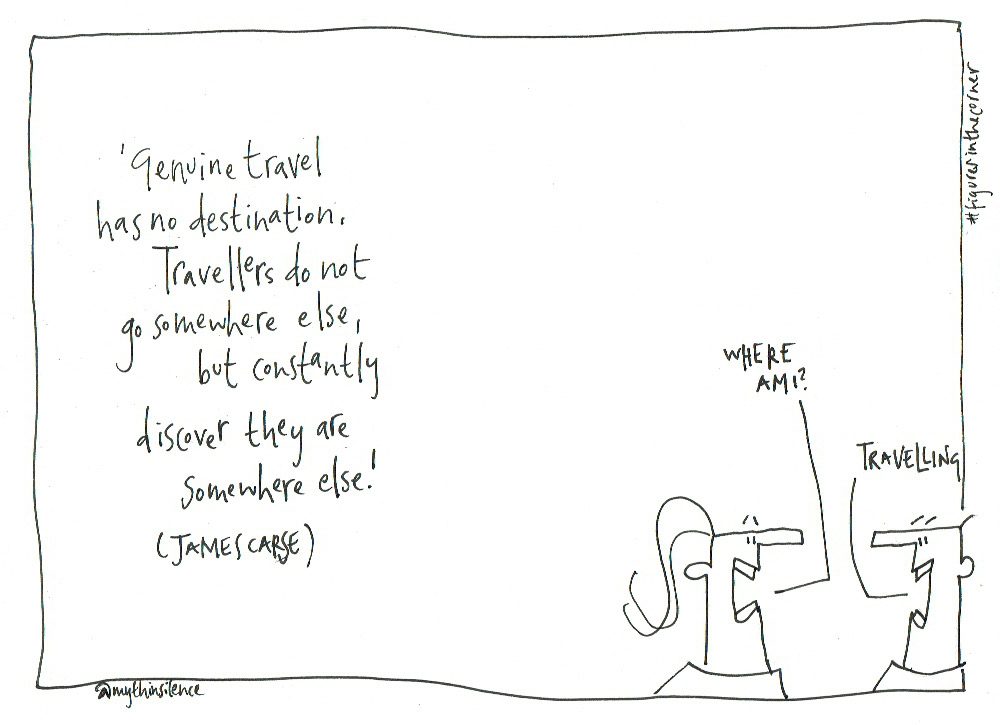 'Genuine travel
has no destination.
Travellers do not
go somewhere else,
but constantly
discover they are
somewhere else!
(JAMES CARSE)
WHERE
AM I?
TRAVELLING
#figuresinthecorner
@mythinsilence